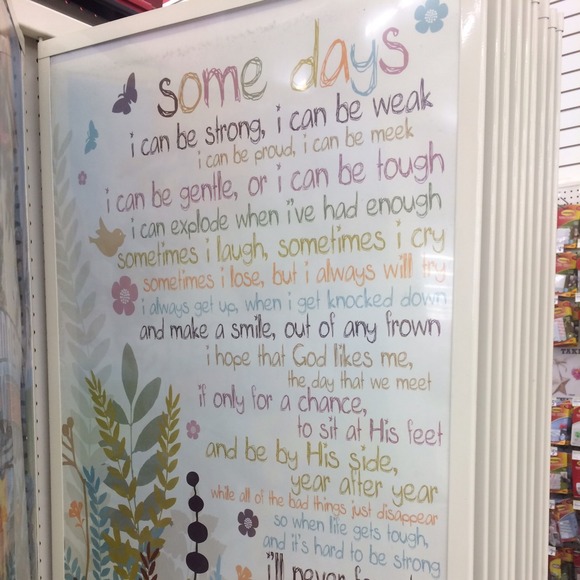 some days
i can be strong, i can be weak
i can be proud, i can be meek
i can be gentle, or i can be tough
i can explode when i've had enough
sometimes i laugh, sometimes i cry
sometimes i lose, but i always will try
i always get up, when i get knocked down
and make a smile, out of any frown
i hope that God likes me,
the day that we meet
if only for a chance,
to sit at His feet
and be by His side,
year after year
while all of the bad things just disappear
so when life gets tough,
and it's hard to be strong
i'll never
TAKE